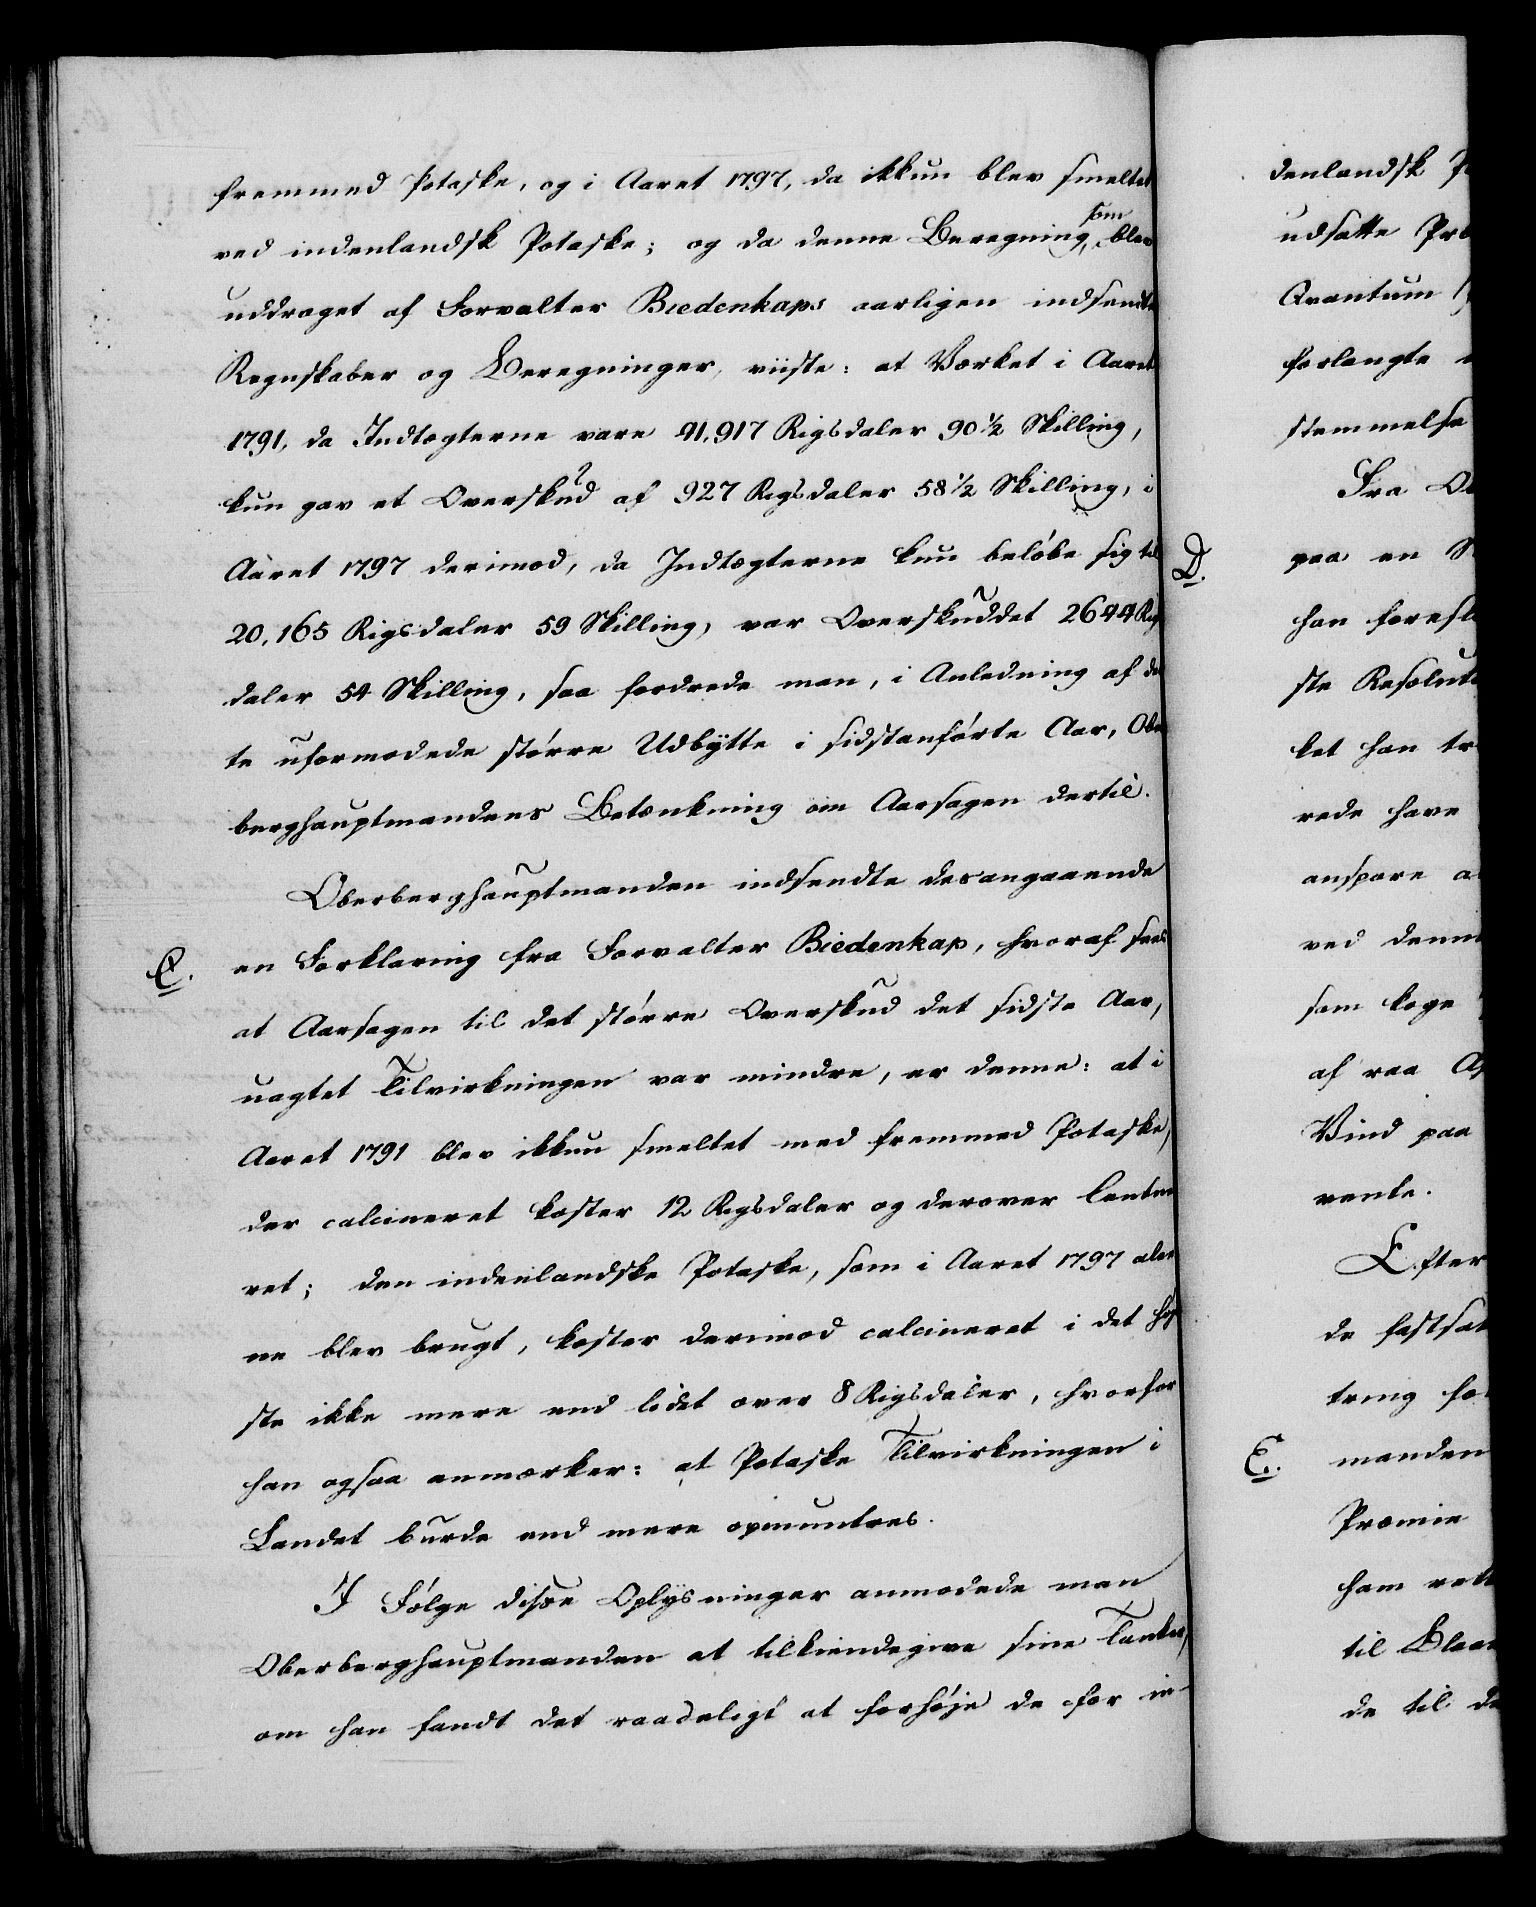 fremmed Potaske, og i Aaret 1797, da ikkun blev smeltet
ved indenlandsk Potaske; og da denne Beregning, som blev
uddraget af Forvalter Biedenkaps aarligen indsendte
Regnskaber og Beregninger, viiste: at Værket i Aaret
1791, da Indtægterne vare 41,917 Rigsdaler 90½ Skilling,
kun gav et Overskud af 927 Rigsdaler 58½ Skilling, i
Aaret 1797 derimod, da Indtægterne kun beløbe sig til
20,165 Rigsdaler 59 Skilling, var Overskuddet 2644 Rigs
daler 54 Skilling, saa fordrede man, i Anledning af det
te uformodede større Udbytte i sidstanførte Aar, Ober
berghauptmandens Betænkning om Aarsagen dertil.
Oberberghauptmanden indsendte desangaaende
C.
en Forklaring fra Forvalter Biedenkap, hvoraf saaes
at Aarsagen til det større Overskud det sidste Aar,
uagtet Tilvirkningen var mindre, er denne: at i
Aaret 1791 blev ikkun smeltet med fremmed Potaske,
der calcineret koster 12 Rigsdaler og derover Centne
ret; den indenlandske Potaske, som i Aaret 1797 ale
ne blev brugt, koster derimod calcineret i det høy
ste ikke mere end lidet over 8 Rigsdaler, hvorfor
han ogsaa anmærker: at Potaske Tilvirkningen i
Landet burde end mere opmuntres.
I Følge disse Oplysninger anmodede man
Oberberghauptmanden at tilkiendegive sine Tanker,
om han fandt det raadeligt at forhøje de for in-
denlandsk
udsatte
Qvantum
forlangte
stemmelse
Fra
D.
paa en
han
ste
ket han
rede have
anspore
ved
som koge
af raa
Vind paa
vente.
Efter
de
tring
E.
manden
Præmie
ham
til
de til